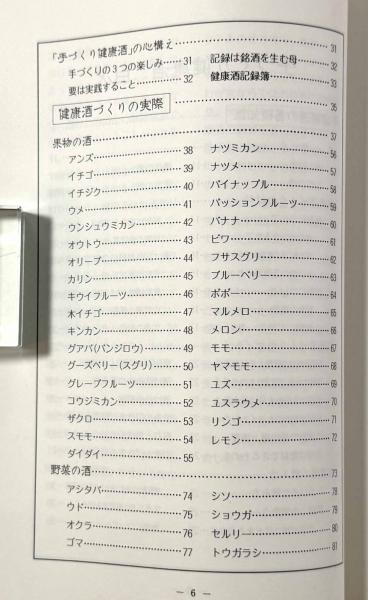 「手づくり健康酒」の心構え……31
手づくりの3つの楽しみ……31
要は実践すること……32
記録は銘酒を生む母……32
健康酒記録簿……33
健康酒づくりの実際……35
果物の酒……37
アンズ……38
イチゴ……39
イチジク……40
ウメ……41
ウンシュウミカン……42
オウトウ……43
オリーブ……44
カリン……45
キウイフルーツ……46
木イチゴ……47
キンカン……48
グアバ(バンジロウ)……49
グーズベリー(スグリ)……50
グレープフルーツ……51
コウジミカン……52
ザクロ……53
スモモ……54
ダイダイ……55
ナツミカン……56
ナツメ……57
パイナップル……58
パッションフルーツ……59
バナナ……60
ビワ……61
フサスグリ……62
ブルーベリー……63
ポポー……64
マルメロ……65
メロン……66
モモ……67
ヤマモモ……68
ユズ……69
ユスラウメ……70
リンゴ……71
レモン……72
野菜の酒……73
アシタバ……74
ウド……75
オクラ……76
ゴマ……77
シソ……78
ショウガ……79
セルリー……80
トウガラシ……81
― 6 ―